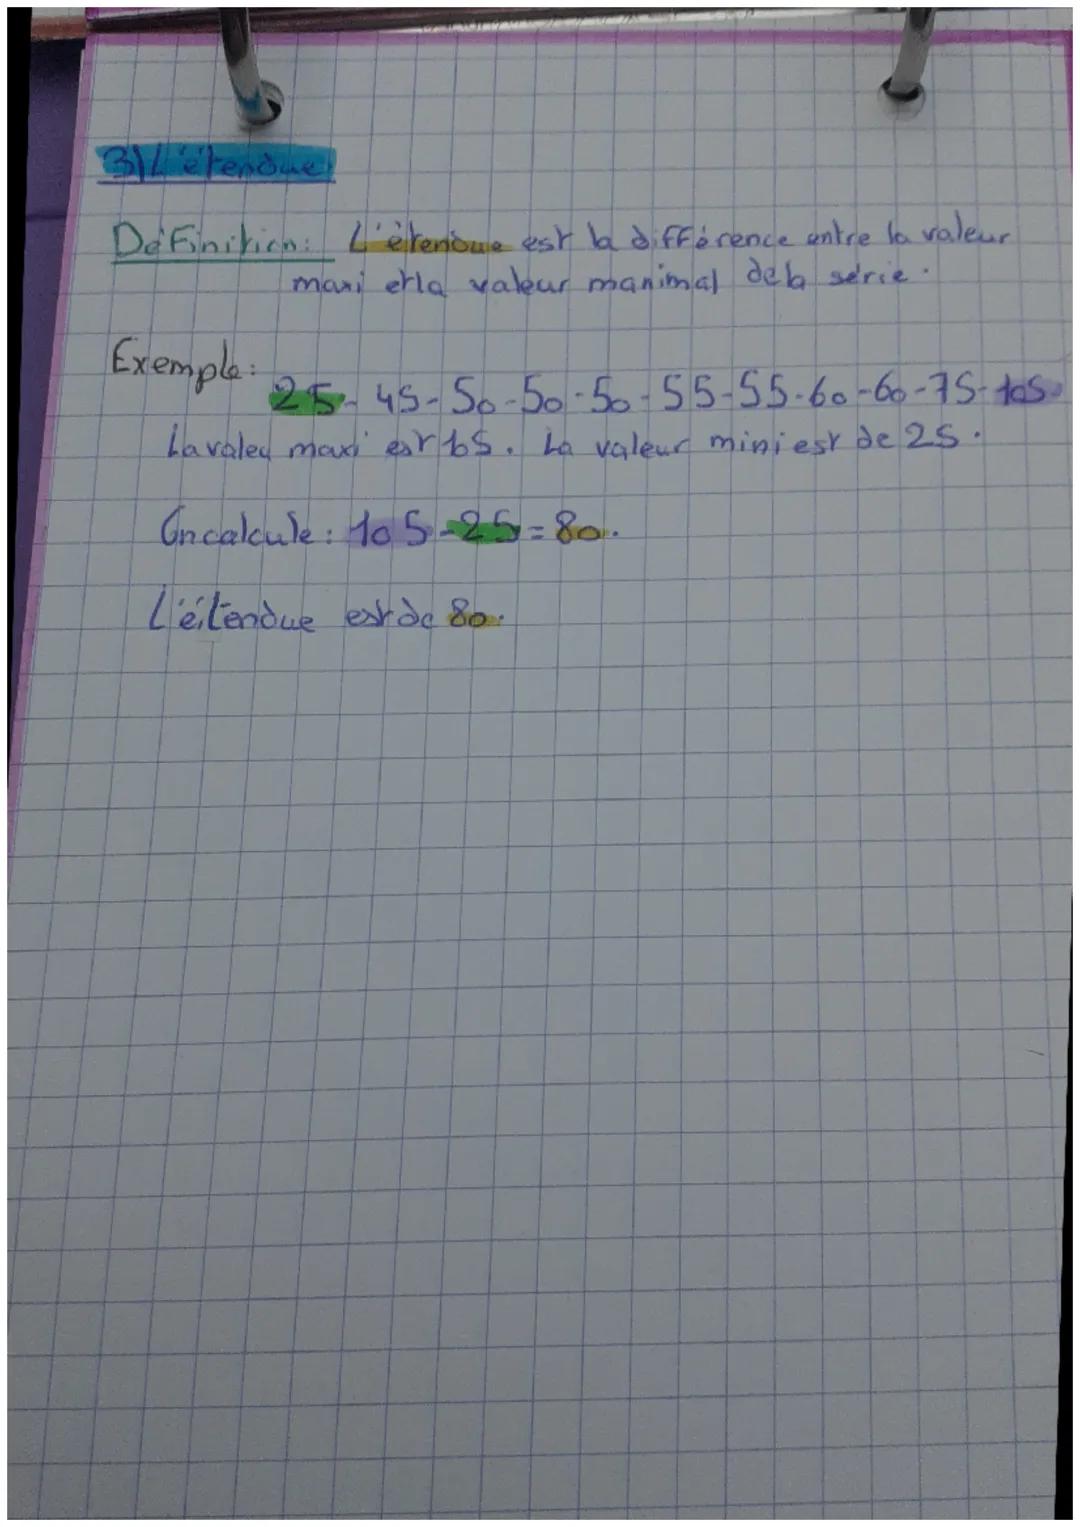 3) L'étendue
Définition: L'étendue est la différence entre la valeur
maxi et la valeur manimal de la série.
Exemple:
25 - 45 - 50 - 50 - 50 - 55 - 55 - 60 - 60 - 75 - 105
La valeu maxi est 105. La valeur mini est de 25.
On calcule: 105 - 25 = 80.
L'étendue est de 80.